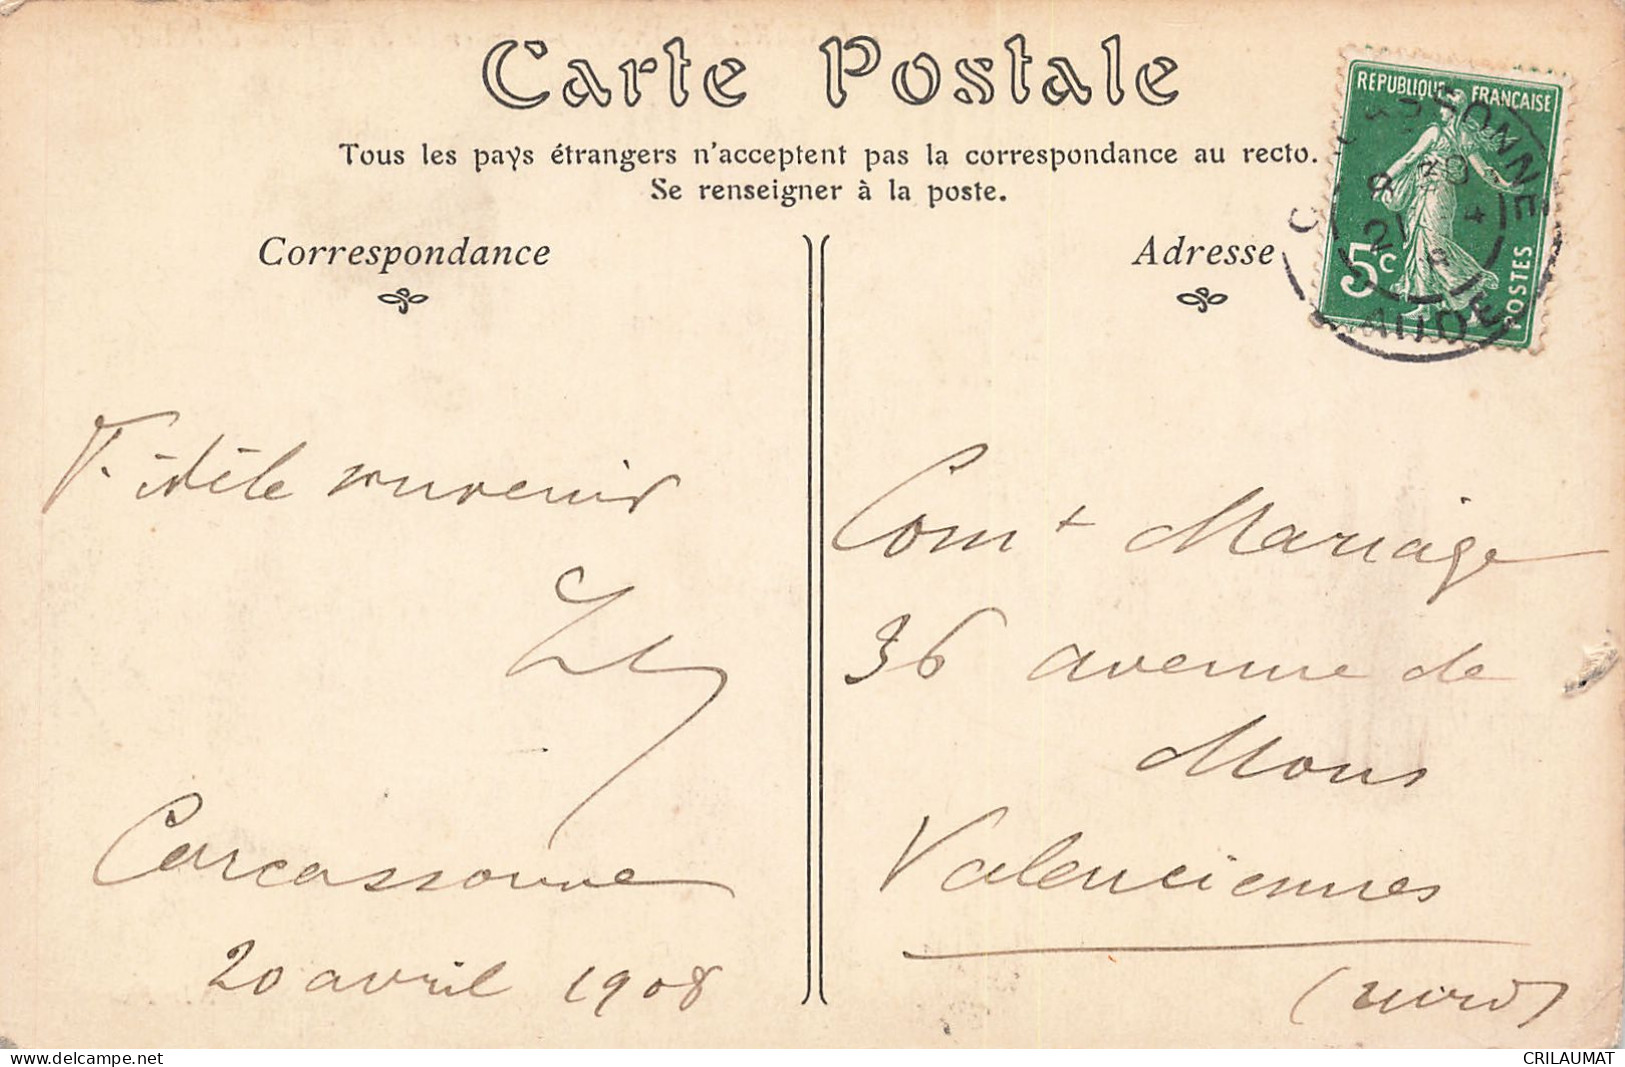 Carte Postale
Tous les pays étrangers n'acceptent pas la correspondance au recto.
Se renseigner à la poste.
Correspondance
Adresse
REPUBLIQUE FRANÇAISE
5c
POSTES
CARCASSONNE
21 4
AUDE
Fidèle souvenir
Carcassonne
20 avril 1908
Comt Mariage
36 avenue de
Mons
Valenciennes
(nord)
delcampe.net
CRILAUMAT